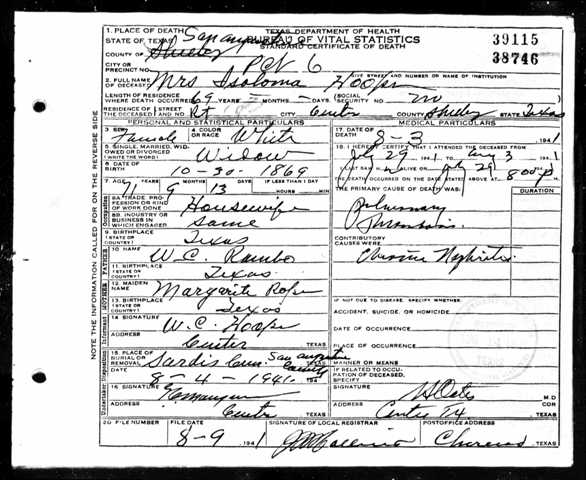 TEXAS DEPARTMENT OF HEALTH
BUREAU OF VITAL STATISTICS
STANDARD CERTIFICATE OF DEATH
39115
38746
1. PLACE OF DEATH San
STATE OF TEXAS
COUNTY OF Shelby
CITY OR
PRECINCT NO. PCT 6
GIVE STREET AND NUMBER OR NAME OF INSTITUTION
2. FULL NAME
OF DECEASED Mrs Isoloma Hooper
LENGTH OF RESIDENCE
WHERE DEATH OCCURRED 69 YEARS - MONTHS - DAYS (SOCIAL SECURITY NO. no
RESIDENCE OF
THE DECEASED STREET AND NO. Rt 1 CITY Center COUNTY Shelby STATE Texas
PERSONAL AND STATISTICAL PARTICULARS
3. SEX Female
4. COLOR OR RACE White
5. SINGLE, MARRIED, WIDOWED OR DIVORCED
(WRITE THE WORD) Widow
6. DATE OF BIRTH 10-30-1869
7. AGE 71 YEARS 9 MONTHS 13 DAYS IF LESS THAN 1 DAY
HOURS MIN
8A. TRADE, PROFESSION OR KIND OF WORK DONE Housewife
8B. INDUSTRY OR BUSINESS IN WHICH ENGAGED Same
9. BIRTHPLACE
(STATE OR COUNTRY) Texas
10. NAME W.C. Rambo
11. BIRTHPLACE
(STATE OR COUNTRY) Texas
12. MAIDEN NAME Margarite Roper
13. BIRTHPLACE
(STATE OR COUNTRY) Texas
14. SIGNATURE W.C. Hooper
ADDRESS Center TEXAS
15. PLACE OF BURIAL OR REMOVAL Sardis Cem San Augustine County
8-4-1941
16. SIGNATURE
ADDRESS Center TEXAS
MEDICAL PARTICULARS
17. DATE OF DEATH 8-3 1941
18. I HEREBY CERTIFY THAT I ATTENDED THE DECEASED FROM
July 29 1941 TO Aug 3 1941
LAST SAW ALIVE ON 29
THE DEATH OCCURRED ON THE DATE STATED ABOVE AT 8:00 P M
THE PRIMARY CAUSE OF DEATH WAS: DURATION
Pulmonary
CONTRIBUTORY CAUSES WERE Chronic Nephritis
IF NOT DUE TO DISEASE, SPECIFY WHETHER:
ACCIDENT, SUICIDE, OR HOMICIDE
DATE OF OCCURRENCE
PLACE OF OCCURRENCE
MANNER OR MEANS
IF RELATED TO OCCUPATION OF DECEASED, SPECIFY
SIGNATURE M.D.
COR
ADDRESS Center
20. FILE NUMBER
FILE DATE 8-9 1941
SIGNATURE OF LOCAL REGISTRAR
POSTOFFICE ADDRESS
NOTE THE INFORMATION CALLED FOR ON THE REVERSE SIDE
Occupation
FATHER
MOTHER
Informant
Undertaker Disposition